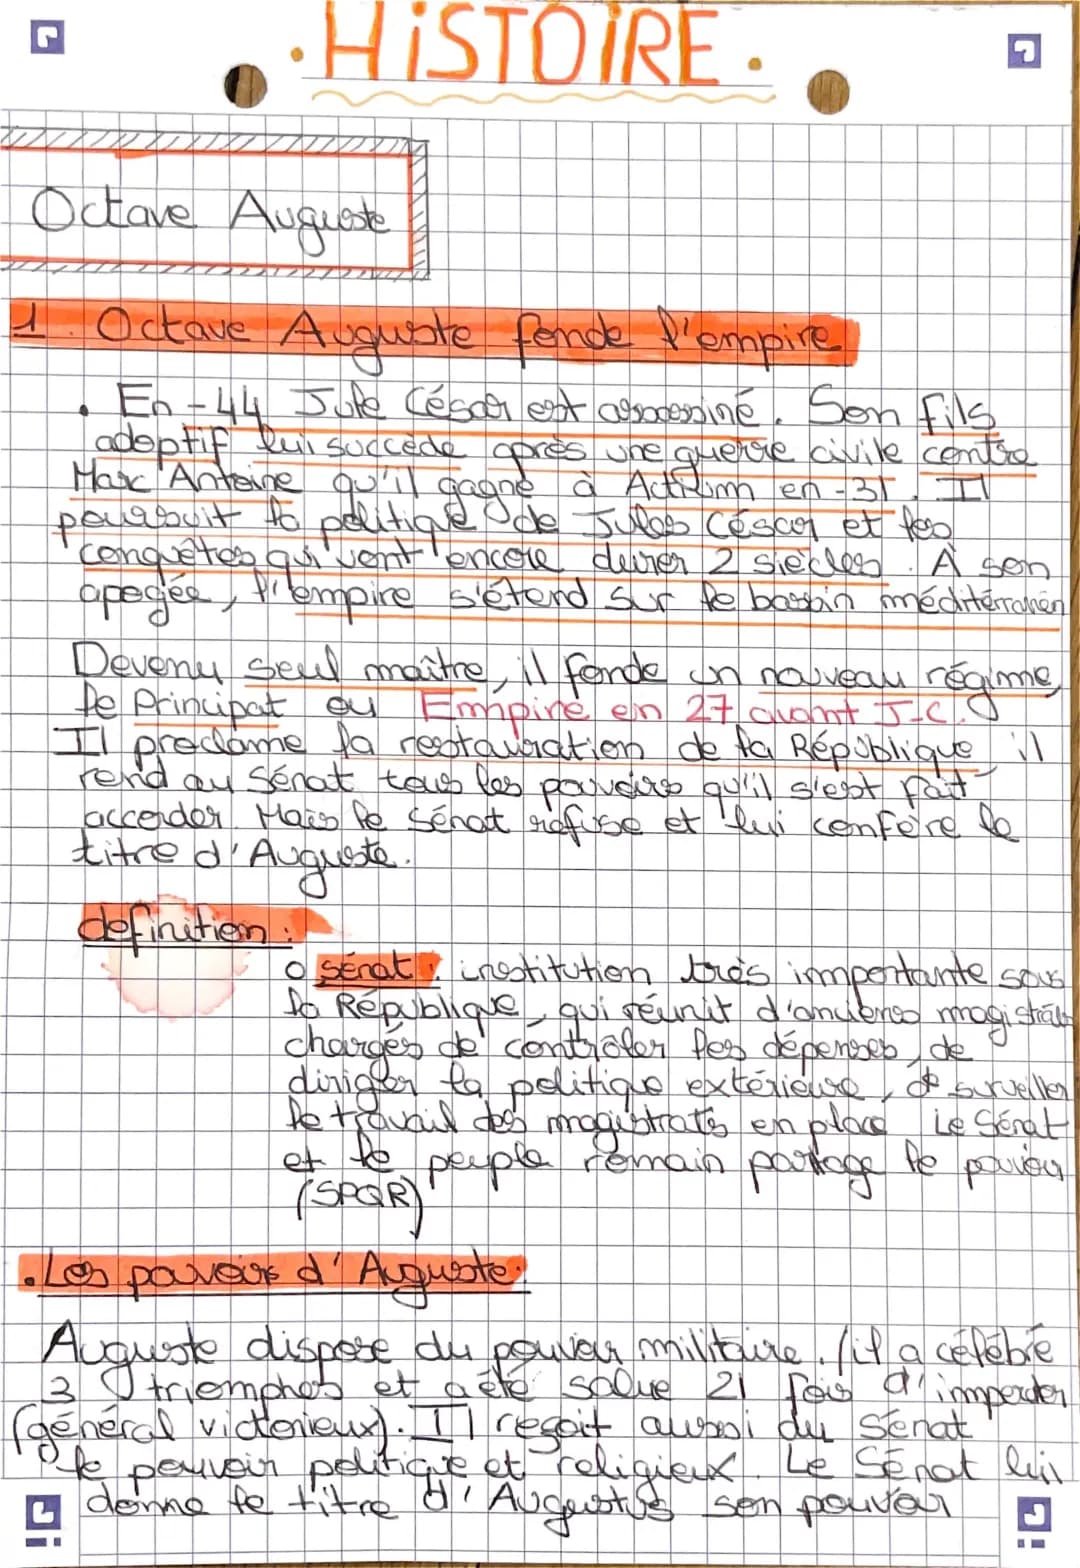 . HiSTOiRE .
Octave Auguste
1. Octave Auguste fonde l'empire
. En -44 Jule César est assassiné. Son fils
adoptif lui succède après une guerre civile contre
Marc Antoine qu'il gagne à Actium en -31. Il
poursuit la politique de Jules César et les
conquêtes qui vont encore durer 2 siècles. À son
apogée, l'empire s'étend sur le bassin méditérranéen
Devenu seul maître, il fonde un nouveau régime,
le Principat ou Empire en 27 avant J-C.
Il proclame la restauration de la République, il
rend au Sénat tous les pouvoirs qu'il s'est fait
accorder. Mais le Sénat refuse et lui confère le
titre d'Auguste.
definition :
o sénat : institution très importante sous
la République, qui réunit d'anciens magistrats
chargés de contrôler les dépenses, de
diriger la politique extérieure, de surveiller
le travail des magistrats en place Le Sénat
et le peuple romain partage le pouvoir
(SPQR)
. Les pouvoirs d'Auguste:
Auguste dispose du pouvoir militaire. (il a célébré
3 triomphes et a été salué 21 fois d'imperator
(général victorieux). Il reçoit aussi du Sénat
le pouvoir politique et religieux. Le Sénat lui
donne le titre d'Augustus son pouvoir